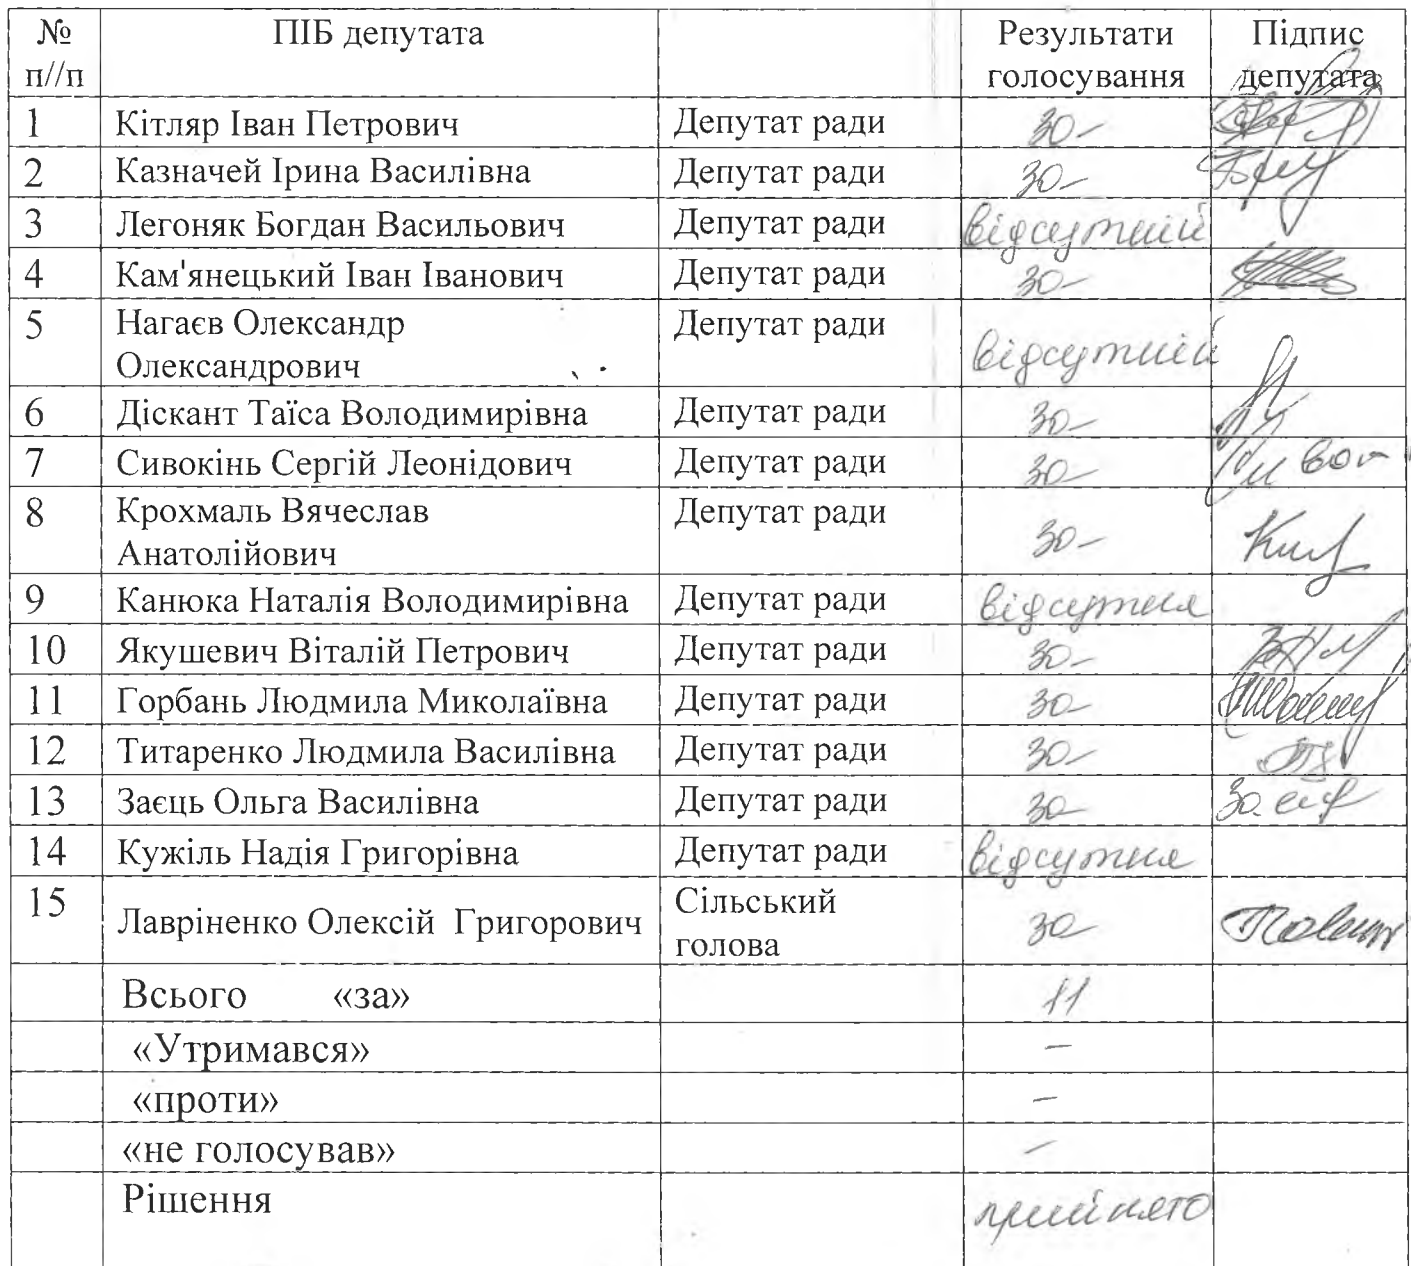 № п//п ПІБ депутата Результати голосування Підпис депутата
1 Кітляр Іван Петрович Депутат ради за
2 Казначей Ірина Василівна Депутат ради за
3 Легоняк Богдан Васильович Депутат ради відсутній
4 Кам'янецький Іван Іванович Депутат ради за
5 Нагаєв Олександр Олександрович Депутат ради відсутній
6 Діскант Таїса Володимирівна Депутат ради за
7 Сивокінь Сергій Леонідович Депутат ради за
8 Крохмаль Вячеслав Анатолійович Депутат ради за
9 Канюка Наталія Володимирівна Депутат ради відсутня
10 Якушевич Віталій Петрович Депутат ради за
11 Горбань Людмила Миколаївна Депутат ради за
12 Титаренко Людмила Василівна Депутат ради за
13 Заєць Ольга Василівна Депутат ради за
14 Кужіль Надія Григорівна Депутат ради відсутня
15 Лавріненко Олексій Григорович Сільський голова за
Всього «за» 11
«Утримався» –
«проти» –
«не голосував» –
Рішення прийнято